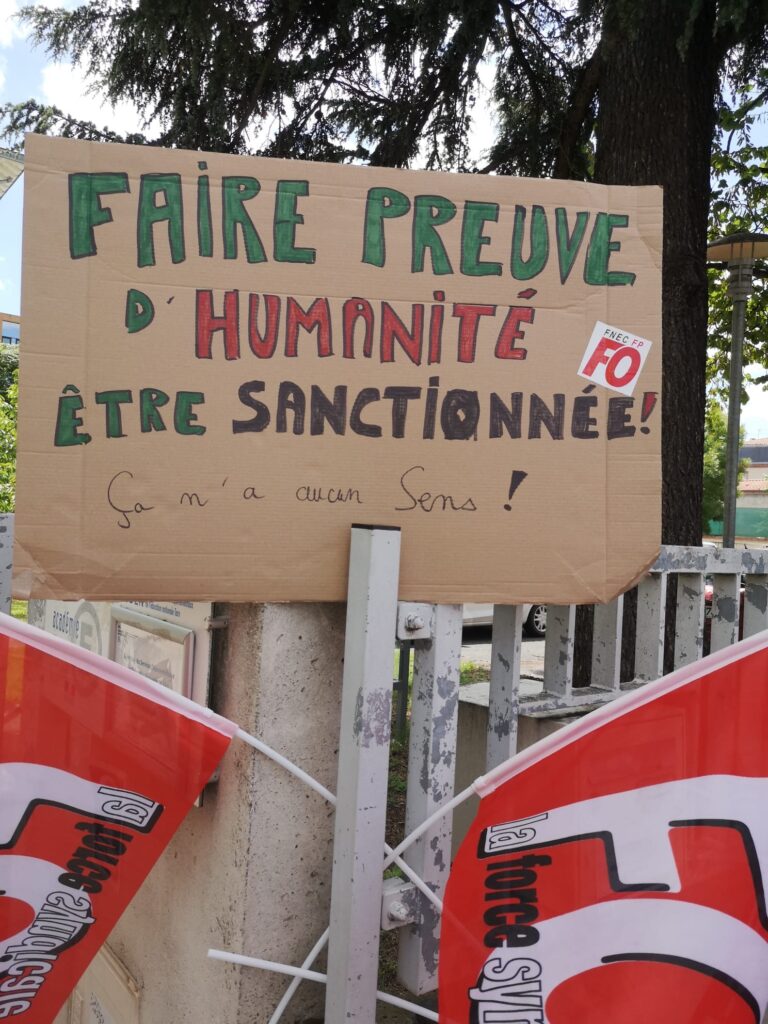 FAIRE PREUVE
D'HUMANITÉ
FNEC FP
FO
ÊTRE SANCTIONNÉE!
Ça n'a aucun Sens !
académie
la force syndicale
la force syn